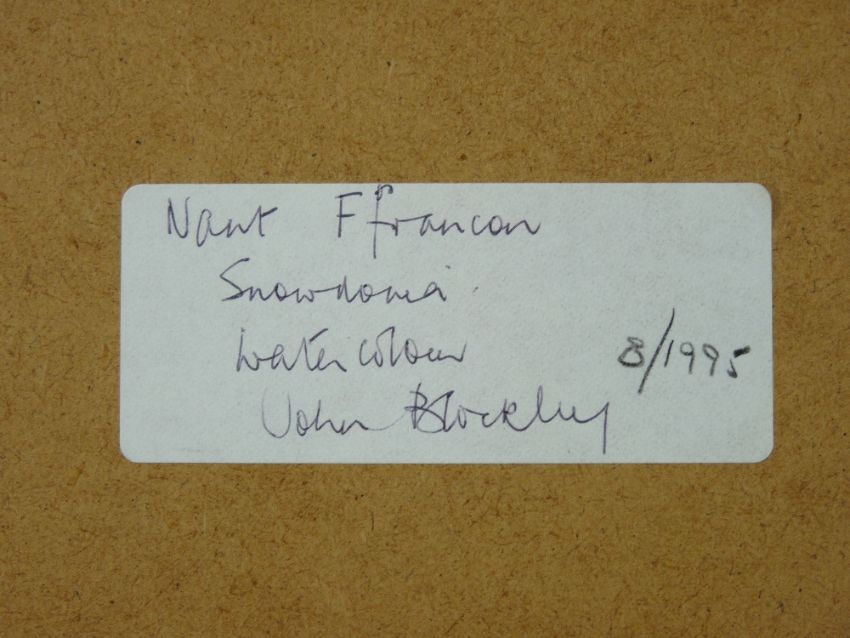 Nant Ffrancon
Snowdonia
Watercolour
8/1995
John Blockley